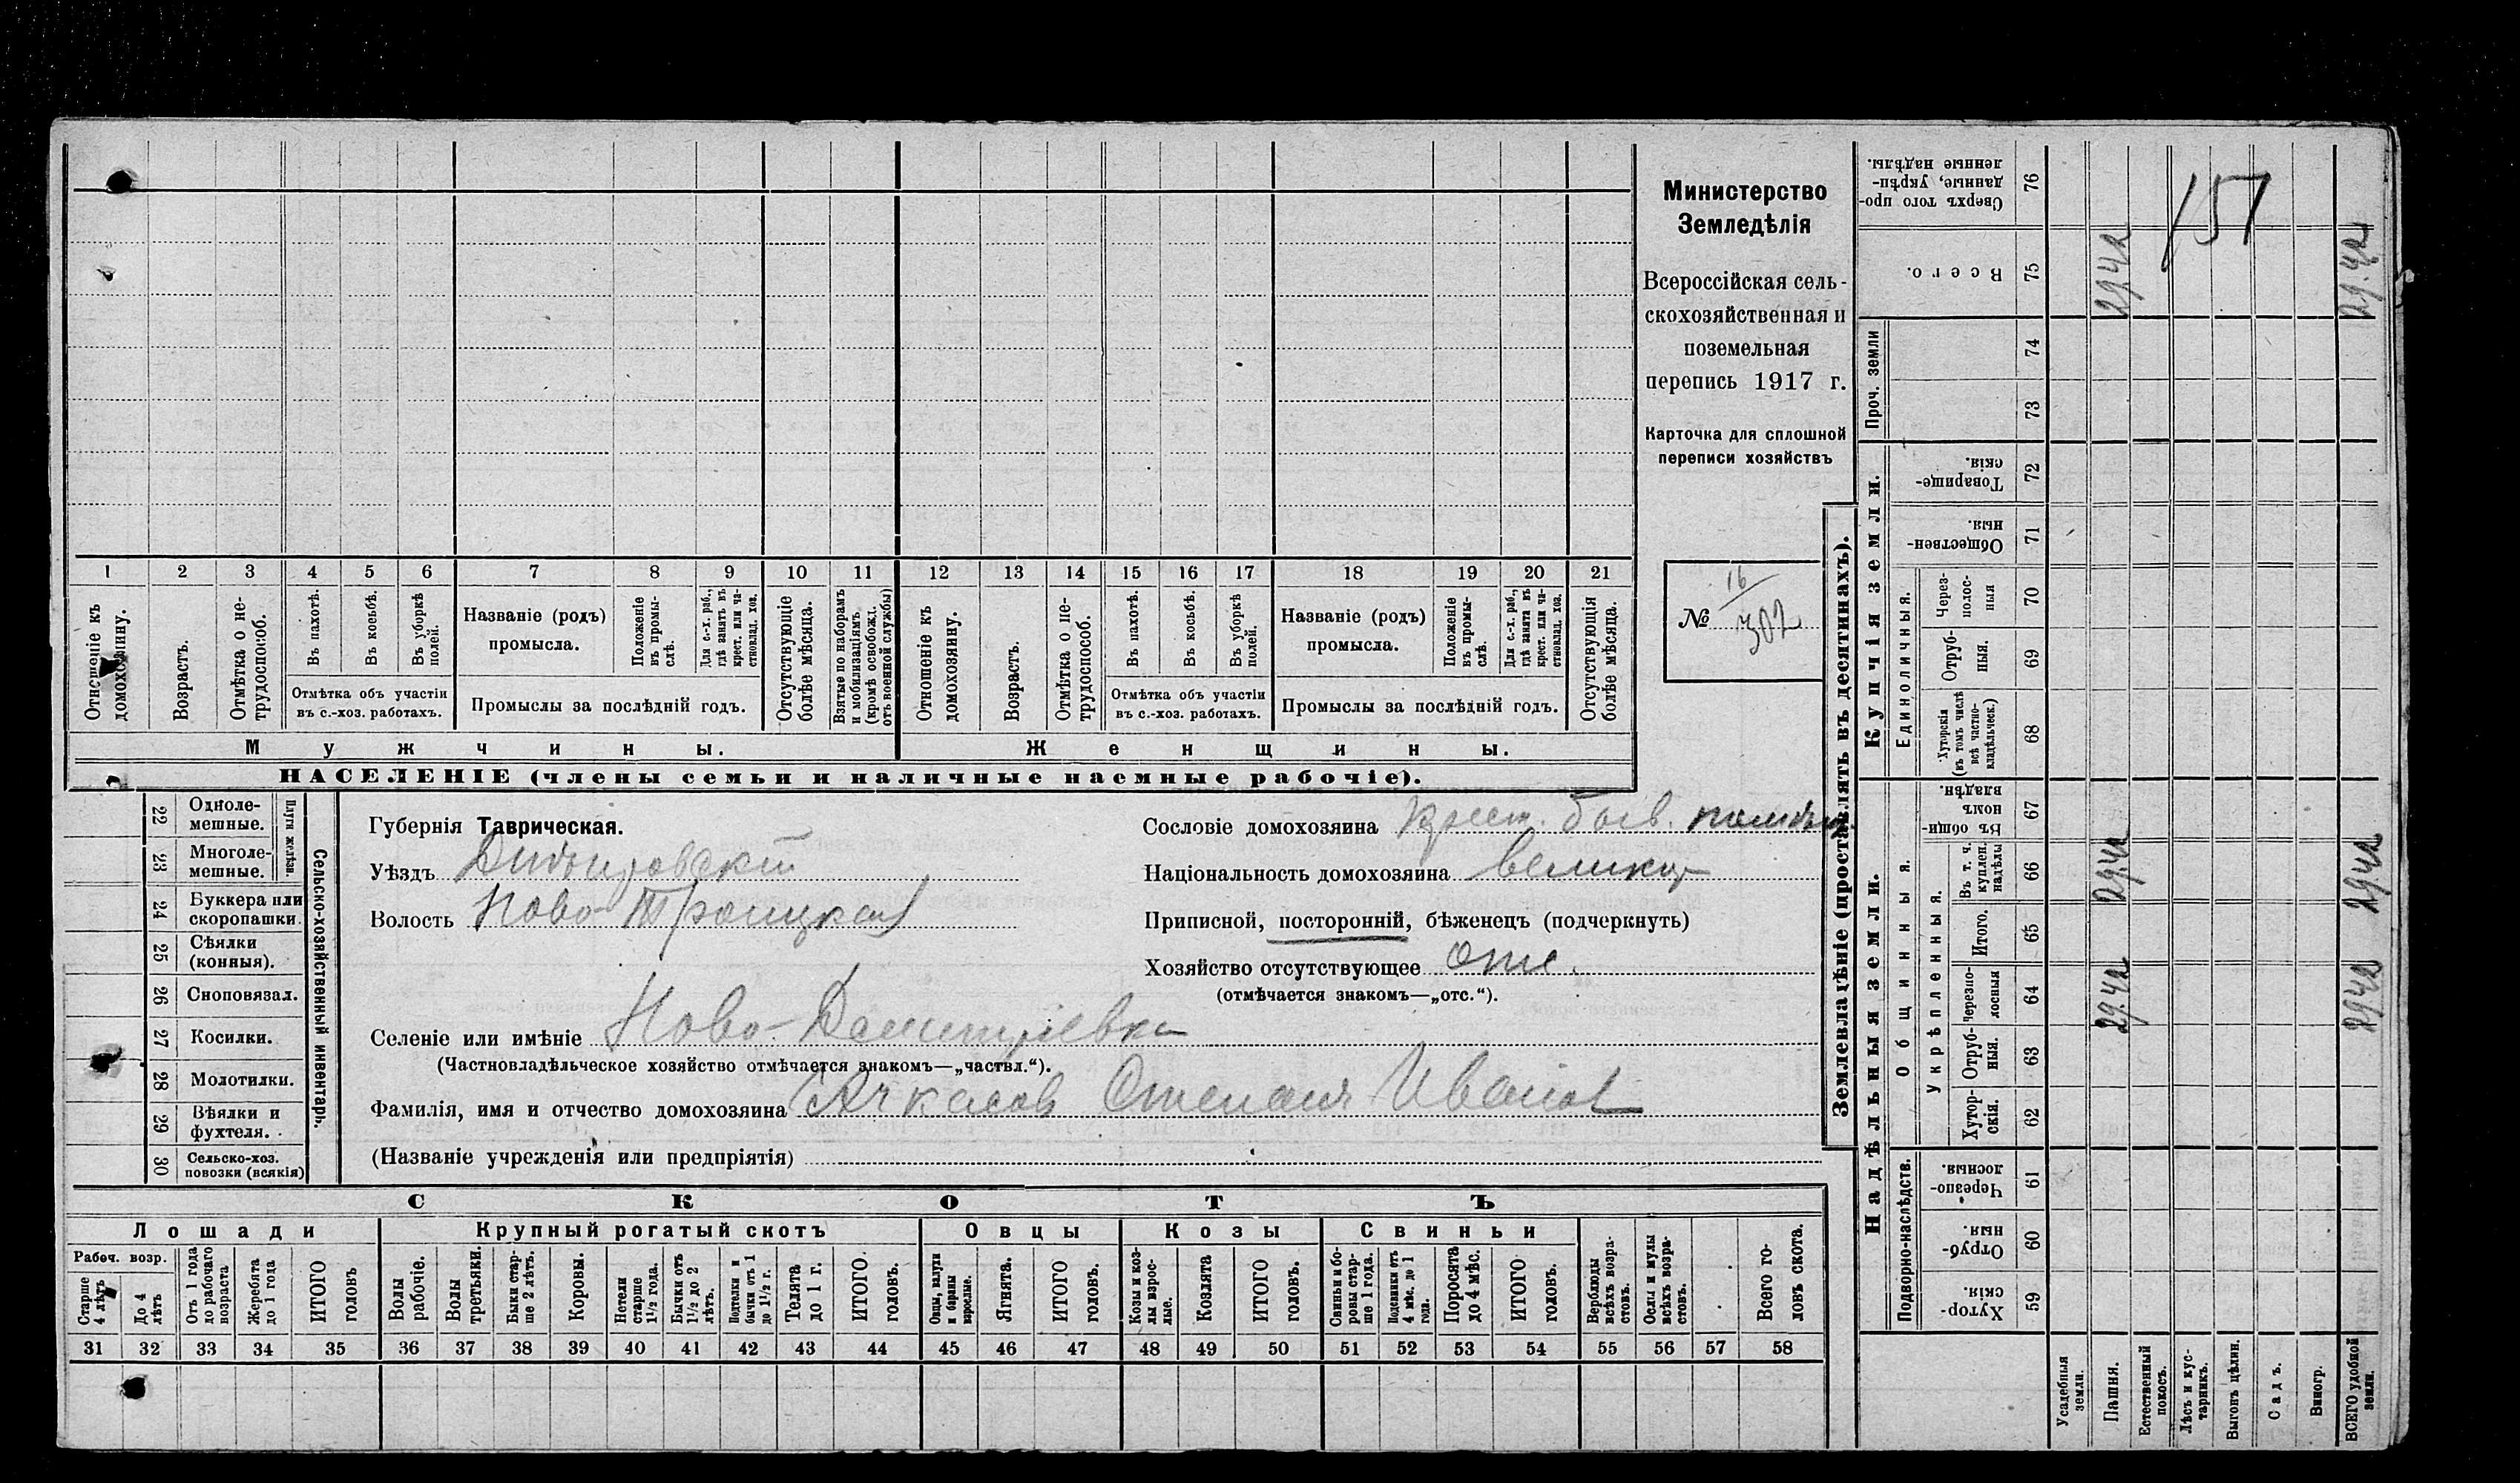 Министерство
Земледѣлія
Всероссійская сель-
скохозяйственная и
поземельная
перепись 1917 г.
Карточка для сплошной
переписи хозяйствъ
№ 16/302
1 2 3 4 5 6 7 8 9 10 11 12 13 14 15 16 17 18 19 20 21
Отношеніе къ домохозяину.
Возрастъ.
Отмѣтка о не-трудоспособ.
Въ пахотѣ.
Въ косьбѣ.
Въ уборкѣ полей.
Отмѣтка объ участіи
въ с.-хоз. работахъ.
Названіе (родъ)
промысла.
Положеніе въ промы-слѣ.
Для с.-х. раб., гдѣ занятъ въ крест. или ча-стновлад. хоз.
Промыслы за послѣдній годъ.
Отсутствующіе болѣе мѣсяца.
Взятые по наборамъ и мобилизаціямъ (кромѣ освобожд. отъ военной службы)
Отношеніе къ домохозяину.
Возрастъ.
Отмѣтка о не-трудоспособ.
Въ пахотѣ.
Въ косьбѣ.
Въ уборкѣ полей.
Отмѣтка объ участіи
въ с.-хоз. работахъ.
Названіе (родъ)
промысла.
Положеніе въ промы-слѣ.
Для с.-х. раб., гдѣ занята въ крест. или ча-стновлад. хоз.
Промыслы за послѣдній годъ.
Отсутствующія болѣе мѣсяца.
Мужчины.
Женщины.
НАСЕЛЕНІЕ (члены семьи и наличные наемные рабочіе).
22 Одноле-мешные.
23 Многоле-мешные.
Плуги желѣзн.
24 Буккера или скоропашки.
25 Сѣялки (конныя).
26 Сноповязал.
27 Косилки.
28 Молотилки.
29 Вѣялки и фухтеля.
30 Сельско-хоз. повозки (всякія)
Сельско-хозяйственный инвентарь.
Губернія Таврическая.
Уѣздъ Днѣпровскій
Волость Ново-Троицкая
Селеніе или имѣніе Ново-Дмитріевка
(Частновладѣльческое хозяйство отмѣчается знакомъ—„частвл.“).
Фамилія, имя и отчество домохозяина Ачкасов Степанъ Иванов
(Названіе учрежденія или предпріятія)
Сословіе домохозяина Крест. бывш.
Національность домохозяина великор
Приписной, посторонній, бѣженецъ (подчеркнуть)
Хозяйство отсутствующее отс.
(отмѣчается знакомъ—„отс.“).
СКОТЪ
Лошади
Крупный рогатый скотъ
Овцы
Козы
Свиньи
Рабоч. возр.
Старше 4 лѣтъ
До 4 лѣтъ
Отъ 1 года до рабочаго возраста
Жеребята до 1 года
ИТОГО головъ
Волы рабочіе.
Волы третьяки.
Быки стар-ше 2 лѣтъ.
Коровы.
Нетели старше 1½ года.
Бычки отъ 1½ до 2 лѣтъ.
Подтелки и бычки отъ 1 до 1½ г.
Телята до 1 г.
ИТОГО головъ.
Овцы, валухи и бараны взрослые.
Ягнята.
ИТОГО головъ.
Козы и коз-лы взрос-лые.
Козлята
ИТОГО головъ.
Свиньи и бо-ровы стар-ше 1 года.
Подсвинки отъ 4 мѣс. до 1 года.
Поросята до 4 мѣс.
ИТОГО головъ.
Верблюды всѣхъ возра-стовъ.
Ослы и мулы всѣхъ возра-стовъ.
Всего го-ловъ скота.
31 32 33 34 35 36 37 38 39 40 41 42 43 44 45 46 47 48 49 50 51 52 53 54 55 56 57 58
Землевладѣніе (проставлять въ десятинахъ).
Купчія земли.
Проч. земли
Единоличныя.
Надѣльныя земли.
Общинныя.
Укрѣпленныя.
Подворно-наслѣдств.
Сверхъ того про-данные, укрѣп-ленные надѣлы. 76
Всего. 75
74
73
Товарище-скія. 72
Обществен-ныя. 71
Через-полос-ныя 70
Отруб-ныя. 69
Хуторскія (въ томъ числѣ всѣ частно-владѣльческ.) 68
Въ общи-номъ владѣн. 67
Въ т. ч. куплен. надѣлы 66
Итого. 65
Черезпо-лосныя 64
Отруб-ныя. 63
Хутор-скія. 62
Черезпо-лосныя. 61
Отруб-ныя. 60
Хутор-скія. 59
Усадебныя земли.
Пашня.
Естественный покосъ.
Лѣсъ и кус-тарникъ.
Выгонъ цѣлин.
Садъ.
Виногр.
ВСЕГО удобной земли.
157